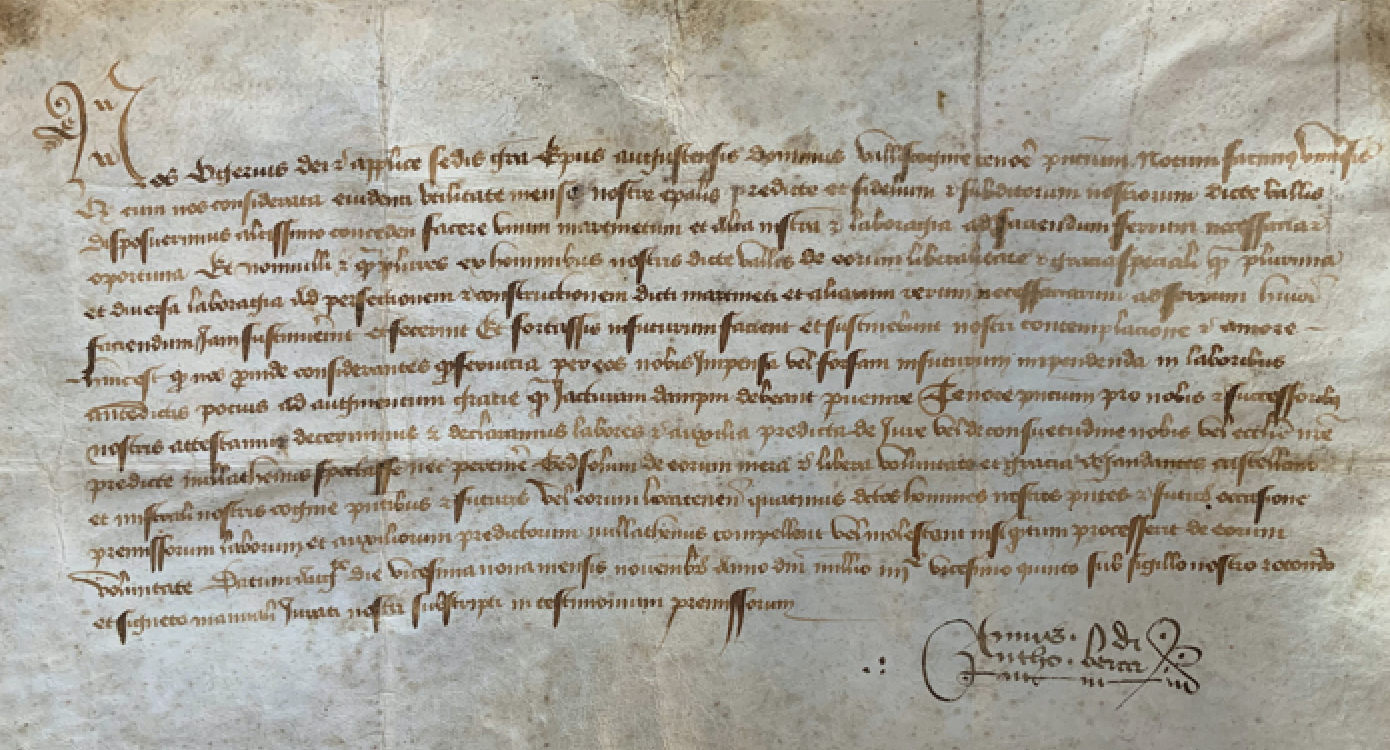 Nos Ogerius dei et applice sedis gra Epus augustensis dominus vallis cogne tenore pntium Notum facimus universis
Et cum nos considerata evidenti utilitate mense nostre epalis predicte et fidelium et subditorum nostrorum dicte vallis
disposuerimus altissimo conceden facere unum maremetum et alia nostra et laboragia ad faciendum ferrum necessaria et
oportuna Et nonnulli et qm plures ex hominibus nostris dicte vallis de eorum liberalitate et gracia speciali qm plurima
et diversa laboragia ad perfectionem et constructionem dicti maremeti et aliarum rerum necessariarum ad ferrum huiusmodi
faciendum Jam sustinuerint et fecerint Et fortassis in futurum facient et sustinebunt nostri contemplacione et amore
hinc est qd nos proinde considerantes qd servicia per eos nobis Impensa vel forsam in futurum impendenda in laboribus
antedictis pocius ad augmentum gratie qm Jacturam dampni debeant pvenire Tenore pntium pro nobis et successoribus
nostris attestamur decernimus et declaramus labores et auxilia predicta de Jure vel de consuetudine nobis vel ecclie nre
predicte nullathenus spectasse nec pertinere Sed solum de eorum mera et libera voluntate et gracia Mandantes castellano
et mistrali nostris cogne pntibus et futuris vel eorum locatenen quatinus dictos homines nostros pntes et futuros occasione
premissorum laborum et auxiliorum predictorum nullathenus compellant vel molestant nisi qtum processerit de eorum
voluntate Datum Aug die vicesima nona mensis novembris anno dni millio iiii vicesimo quinto sub sigillo nostro rotondo
et signeto manuali Jurati nostri subscripti in testimonium premissorum